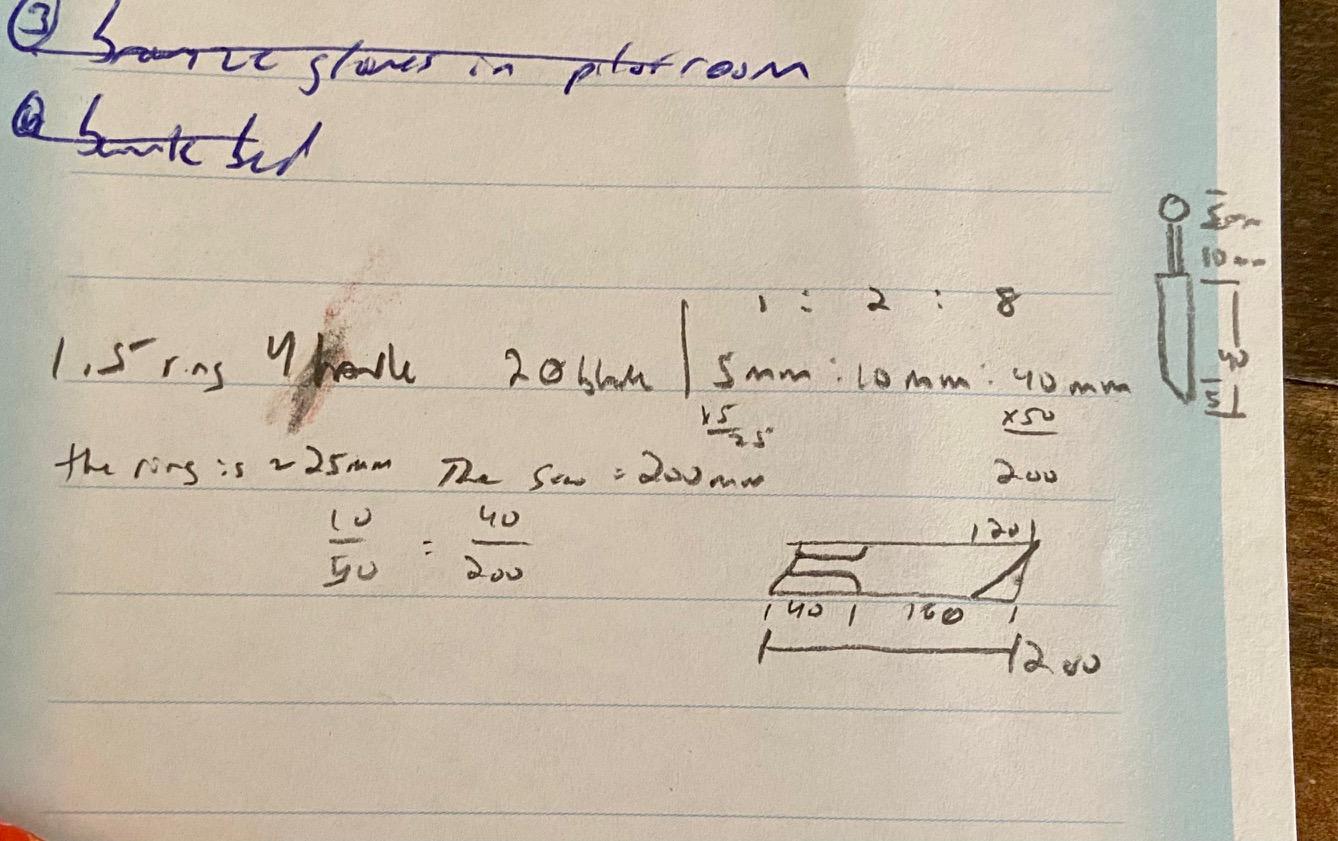 ③ bronze gloves in pilot room
④ bunk bed
1 : 2 : 8
1.5 ring 4 handle 20 blade | 5mm : 10mm : 40mm
x5 x50
25 200
the ring is ~ 25mm The = 200mm
10/50 = 40/200
|20|
|40| 160 |
200
5mm
10mm
40
5